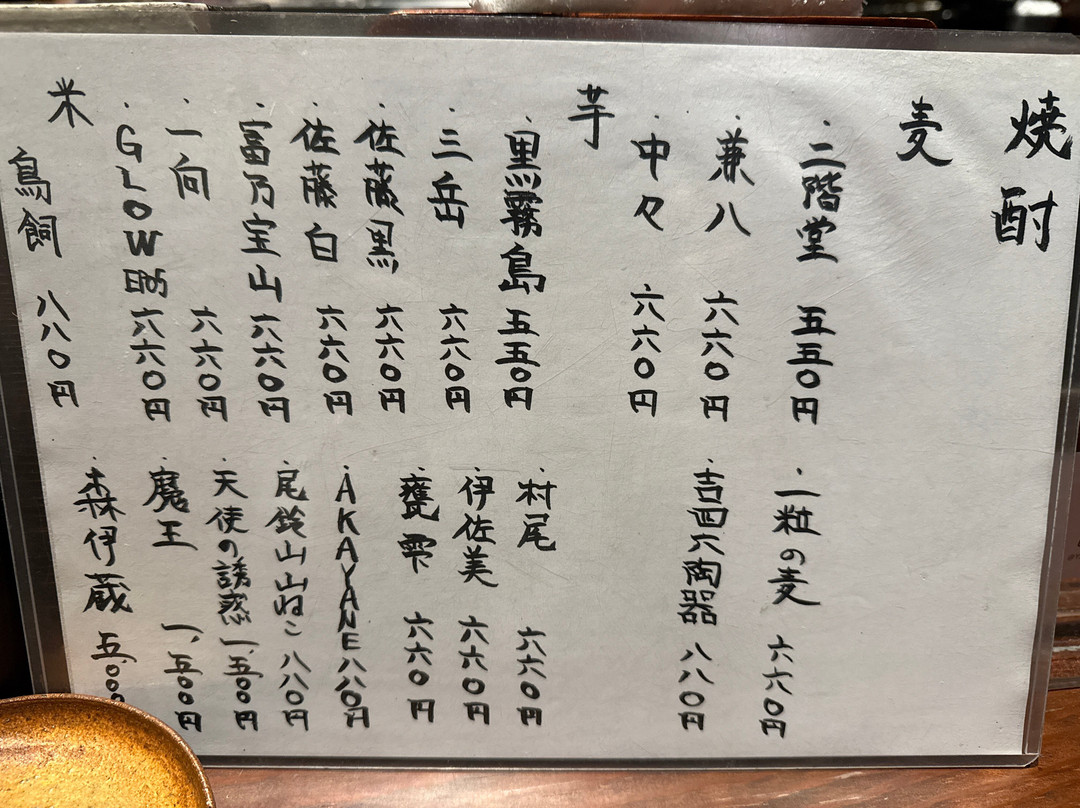 焼酎
麦
・二階堂 五五〇円
・兼八 六六〇円
・中々 六六〇円
・一粒の麦 六六〇円
・吉四六陶器 八八〇円
芋
・黒霧島 五五〇円
・三岳 六六〇円
・佐藤黒 六六〇円
・佐藤白 六六〇円
・富乃宝山 六六〇円
・一向 六六〇円
・GLOW 六六〇円
・村尾 六六〇円
・伊佐美 六六〇円
・甕雫 六六〇円
・AKAYANE 八八〇円
・尾鈴山山ねこ 八八〇円
・天使の誘惑 一、五〇〇円
・魔王 一、五〇〇円
・森伊蔵 五、〇〇
米
鳥飼 八八〇円